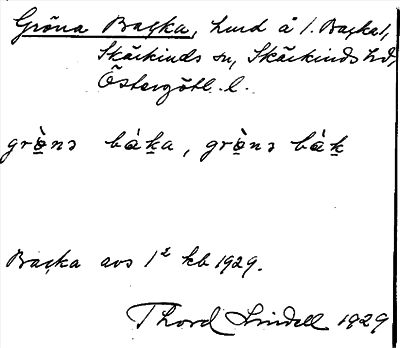 Gröna Backa, hmd å 1. Backa1,
Skärkinds sn, Skärkinds hd,
Östergötl. l.
grö̀nɘ bàka, grö̀nɘ bàk
Backa avs 1² kb 1929.
Thord Lindell 1929